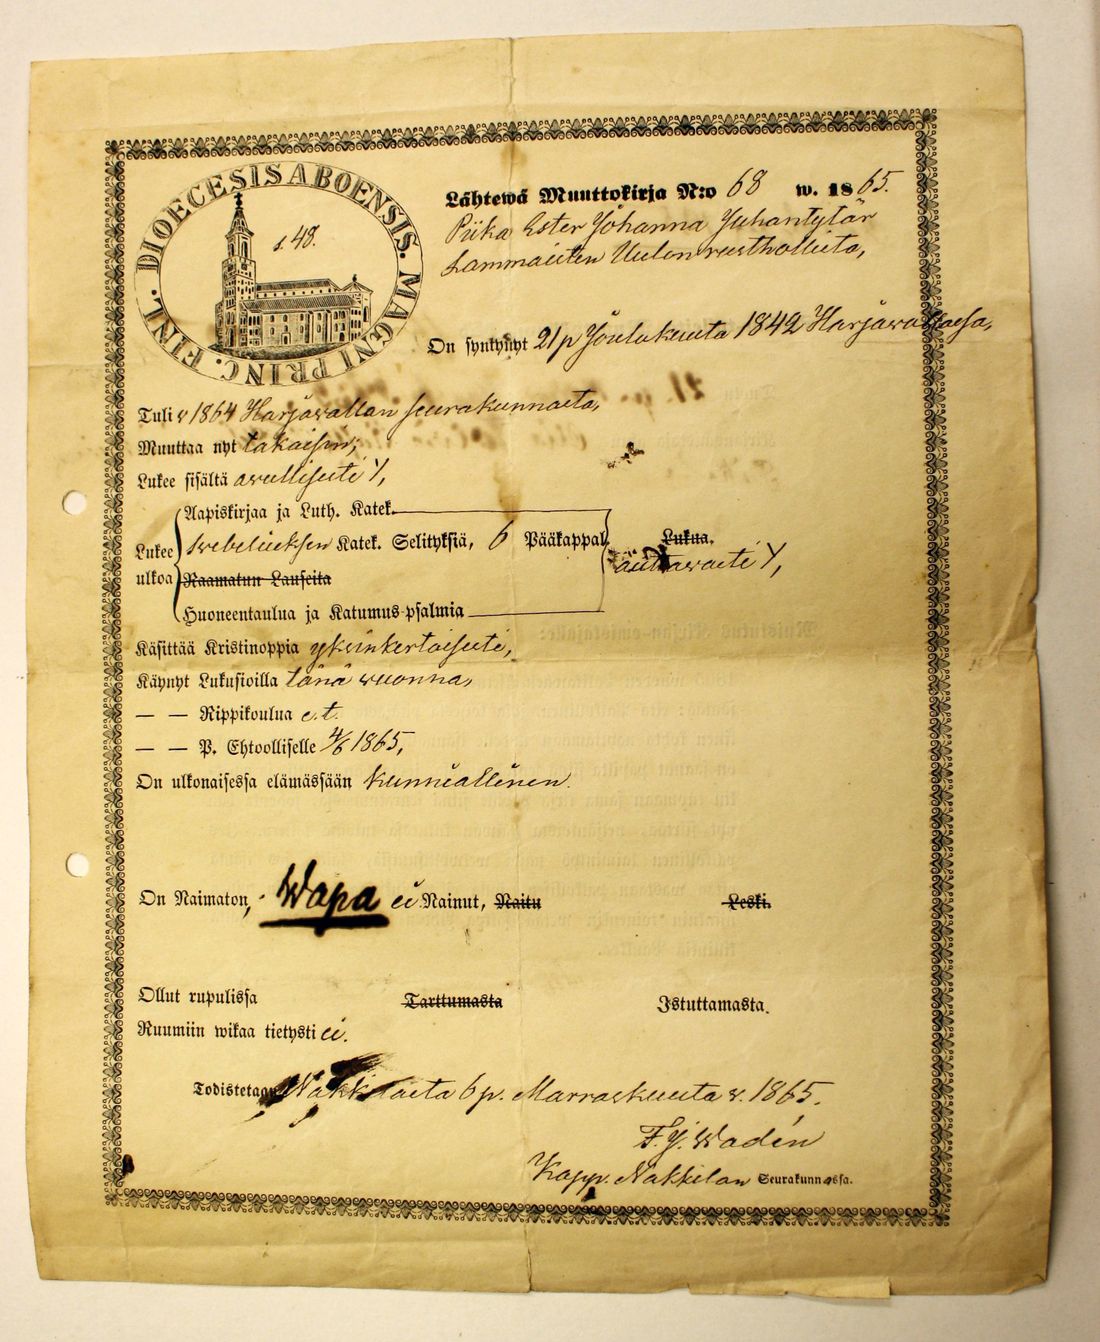 DIOECESIS ABOENSIS. MAGNI PRINC. FINL.
s.48.
Lähtewä Muuttokirja N:o 68 w. 1865.
Piika Ester Johanna Juhantytär
Lammaisten Uulon rusthollista,
On syntynyt 21 p Joulukuuta 1842 Harjawallassa,
Tuli w 1864 Harjawallan seurakunnasta,
Muuttaa nyt takaisin;
Lukee sisältä awullisesti /,
Aapiskirjaa ja Luth. Katek.
Lukee ulkoa Swebeliuksen Katek. Selityksiä, 6 Pääkappal. Lukua.
Raamatun Lauseita auttawasti /,
Huoneentaulua ja Katumus-psalmia
Käsittää Kristinoppia yksinkertaisesti,
Käynyt Lukusioilla tänä wuonna,
— — Rippikoulua e.t.
— — P. Ehtoolliselle 4/6 1865,
On ulkonaisessa elämässään kunniallinen.
On Naimaton, Wapa ei Nainut, Naitu Leski.
Ollut rupulissa Tarttumasta Istuttamasta.
Ruumiin wikaa tietysti ei.
Todistetaan Nakkilasta 6 p. Marraskuuta w. 1865.
F. J. Wadén
Kapp. Nakkilan Seurakunnassa.